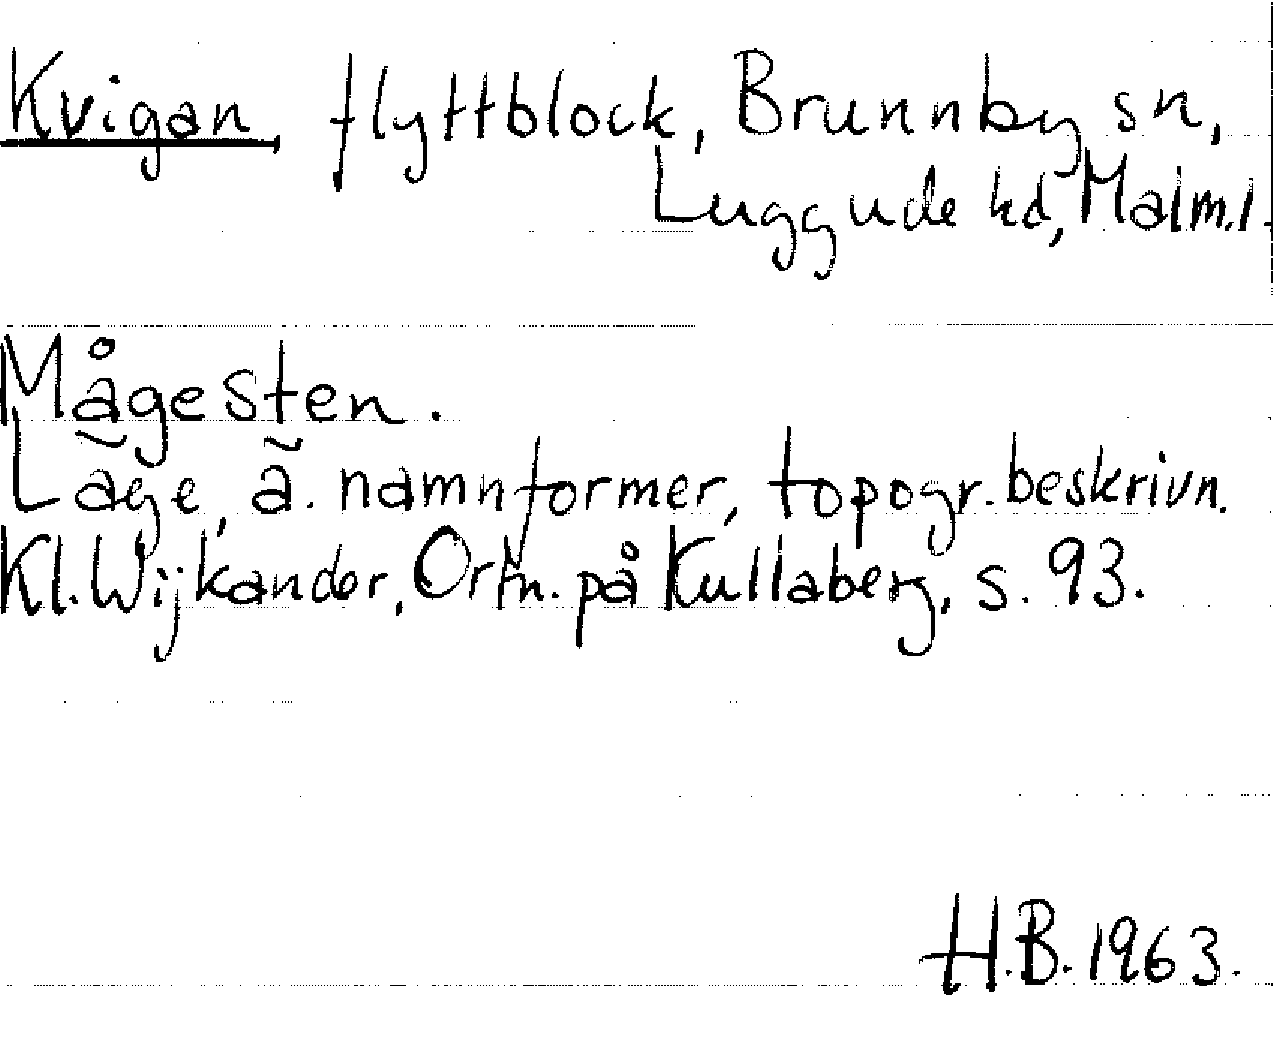 Kvigan, flyttblock, Brunnby sn,
Luggude hd, Malm.l.
Mågesten.
Läge, ä. namnformer, topogr. beskrivn.
Kl. Wijkander, Ortn. på Kullaberg, s. 93.
H.B. 1963.